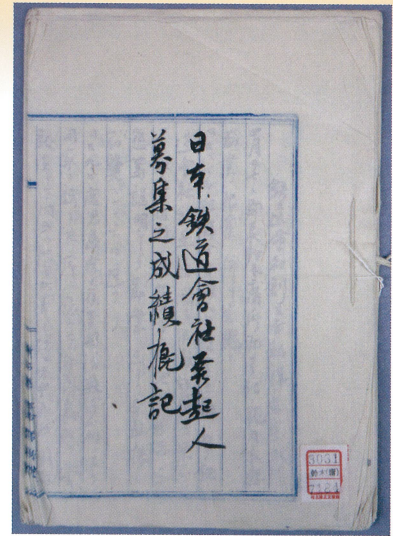 日本鉄道會社発起人
募集之成績概記
3031
7124